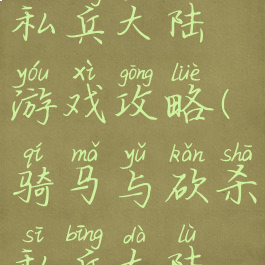 私兵大陆
yóu xì gōng lüè
游戏攻略(
qí mǎ yǔ kǎn shā
骑马与砍杀
sī bīng dà lù
私兵大陆